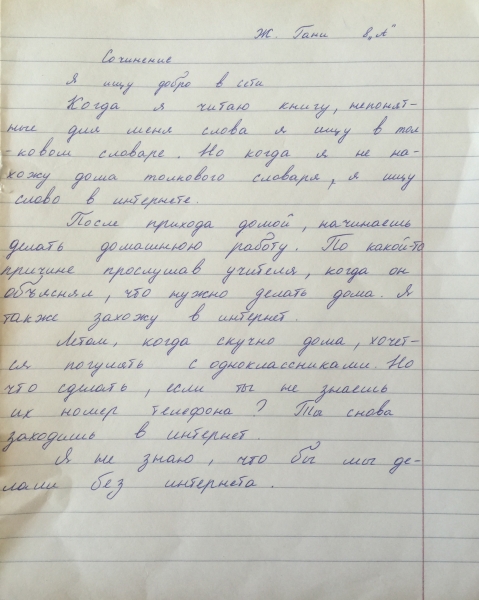 Ж. Гани 8 „А"
Сочинение
Я ищу добро в сети
Когда я читаю книгу, непонят-
ные для меня слова я ищу в тол
-ковом словаре. Но когда я не на-
хожу дома толкового словаря, я ищу
слово в интернете.
После прихода домой, начинаешь
делать домашнюю работу. По какой-то
причине прослушав учителя, когда он
объяснял, что нужно делать дома. Я
также захожу в интернет.
Летом, когда скучно дома, хочет-
ся погулять с одноклассниками. Но
что сделать, если ты не знаешь
их номер телефона? Ты снова
заходишь в интернет.
Я не знаю, что бы мы де-
лали без интернета.